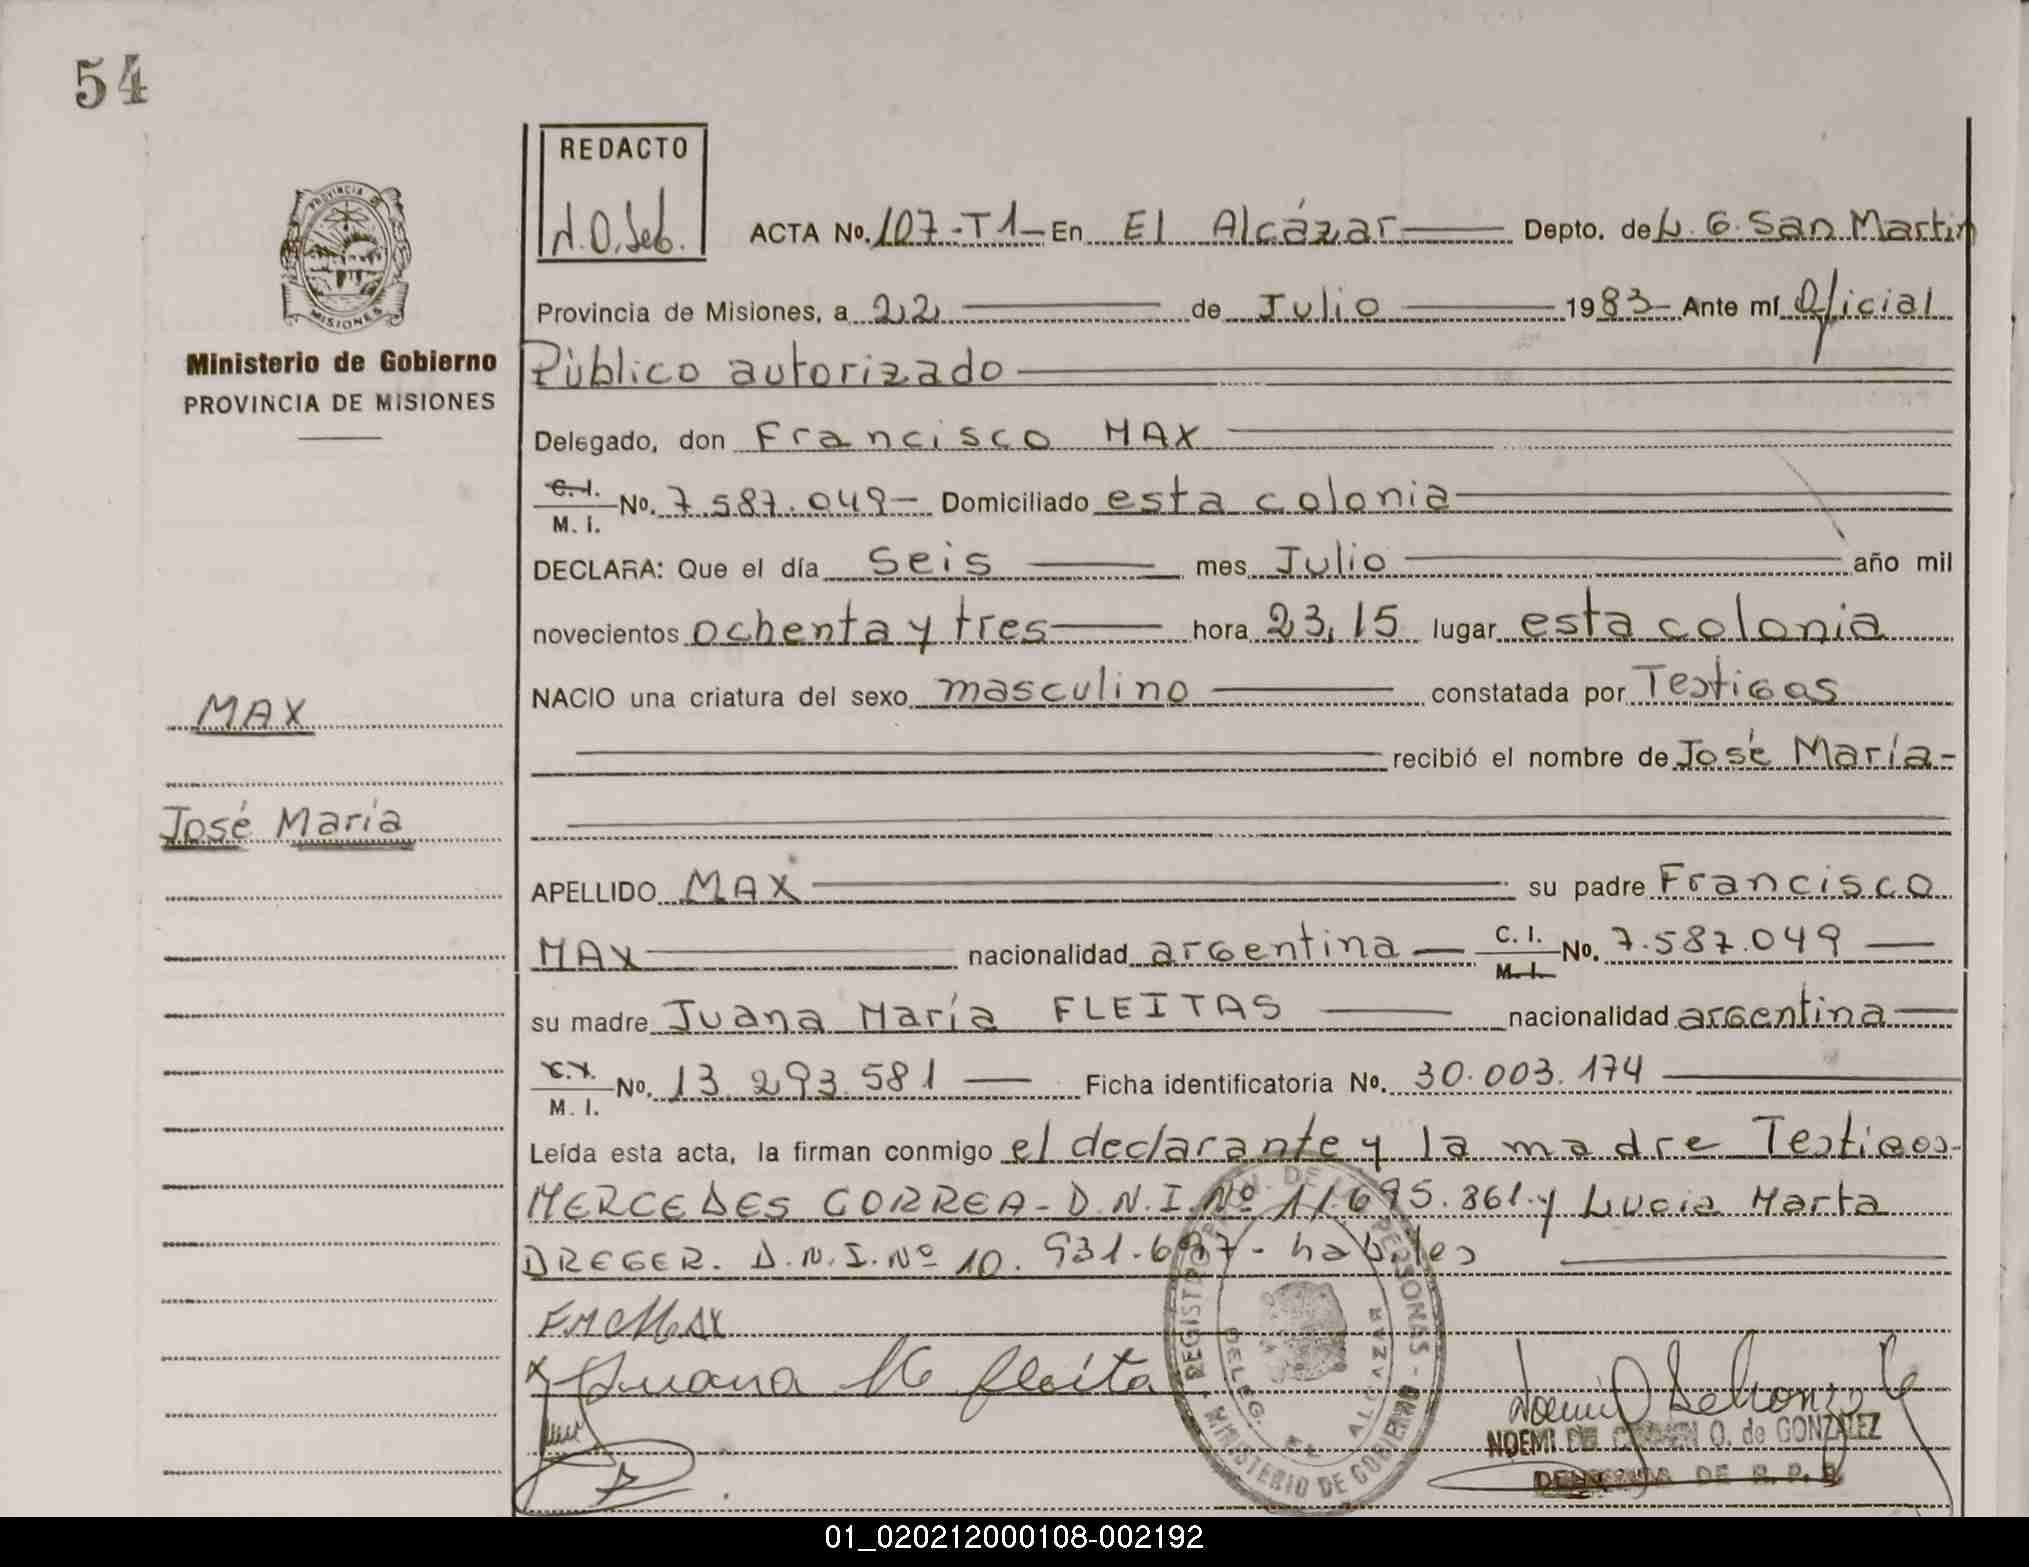 54
REDACTO
PROVINCIA DE
MISIONES
Ministerio de Gobierno
PROVINCIA DE MISIONES
ACTA No. 107-T1- En El Alcázar Depto. de L. G. San Martin
Provincia de Misiones, a 22 de Julio 1983- Ante mí Oficial
Público autorizado
Delegado, don Francisco MAX
C.I. M.I. No. 7.587.049- Domiciliado esta colonia
DECLARA: Que el día Seis mes Julio año mil
novecientos ochenta y tres hora 23,15 lugar esta colonia
NACIO una criatura del sexo masculino constatada por Testigos
MAX
recibió el nombre de José María-
José María
APELLIDO MAX su padre Francisco
MAX nacionalidad argentina - C.I. M.I. No. 7.587.049
su madre Juana María FLEITAS nacionalidad argentina
C.I. M.I. No. 13.293.581 Ficha identificatoria No. 30.003.174
Leída esta acta, la firman conmigo el declarante y la madre Testigos-
MERCEDES CORREA- D.N.I. Nº 11.695.861.y Lucia Marta
DREGER. D.N.I. Nº 10.931.697- habiles
MAX
Juana Ma fleita
REGISTRO PROV. DE LAS PERSONAS - MINISTERIO DE GOBIERNO
DELEG. EL ALCAZAR
NOEMI DEL CARMEN O. de GONZALEZ
DELEGADA DE R. P. P.
01_020212000108-002192